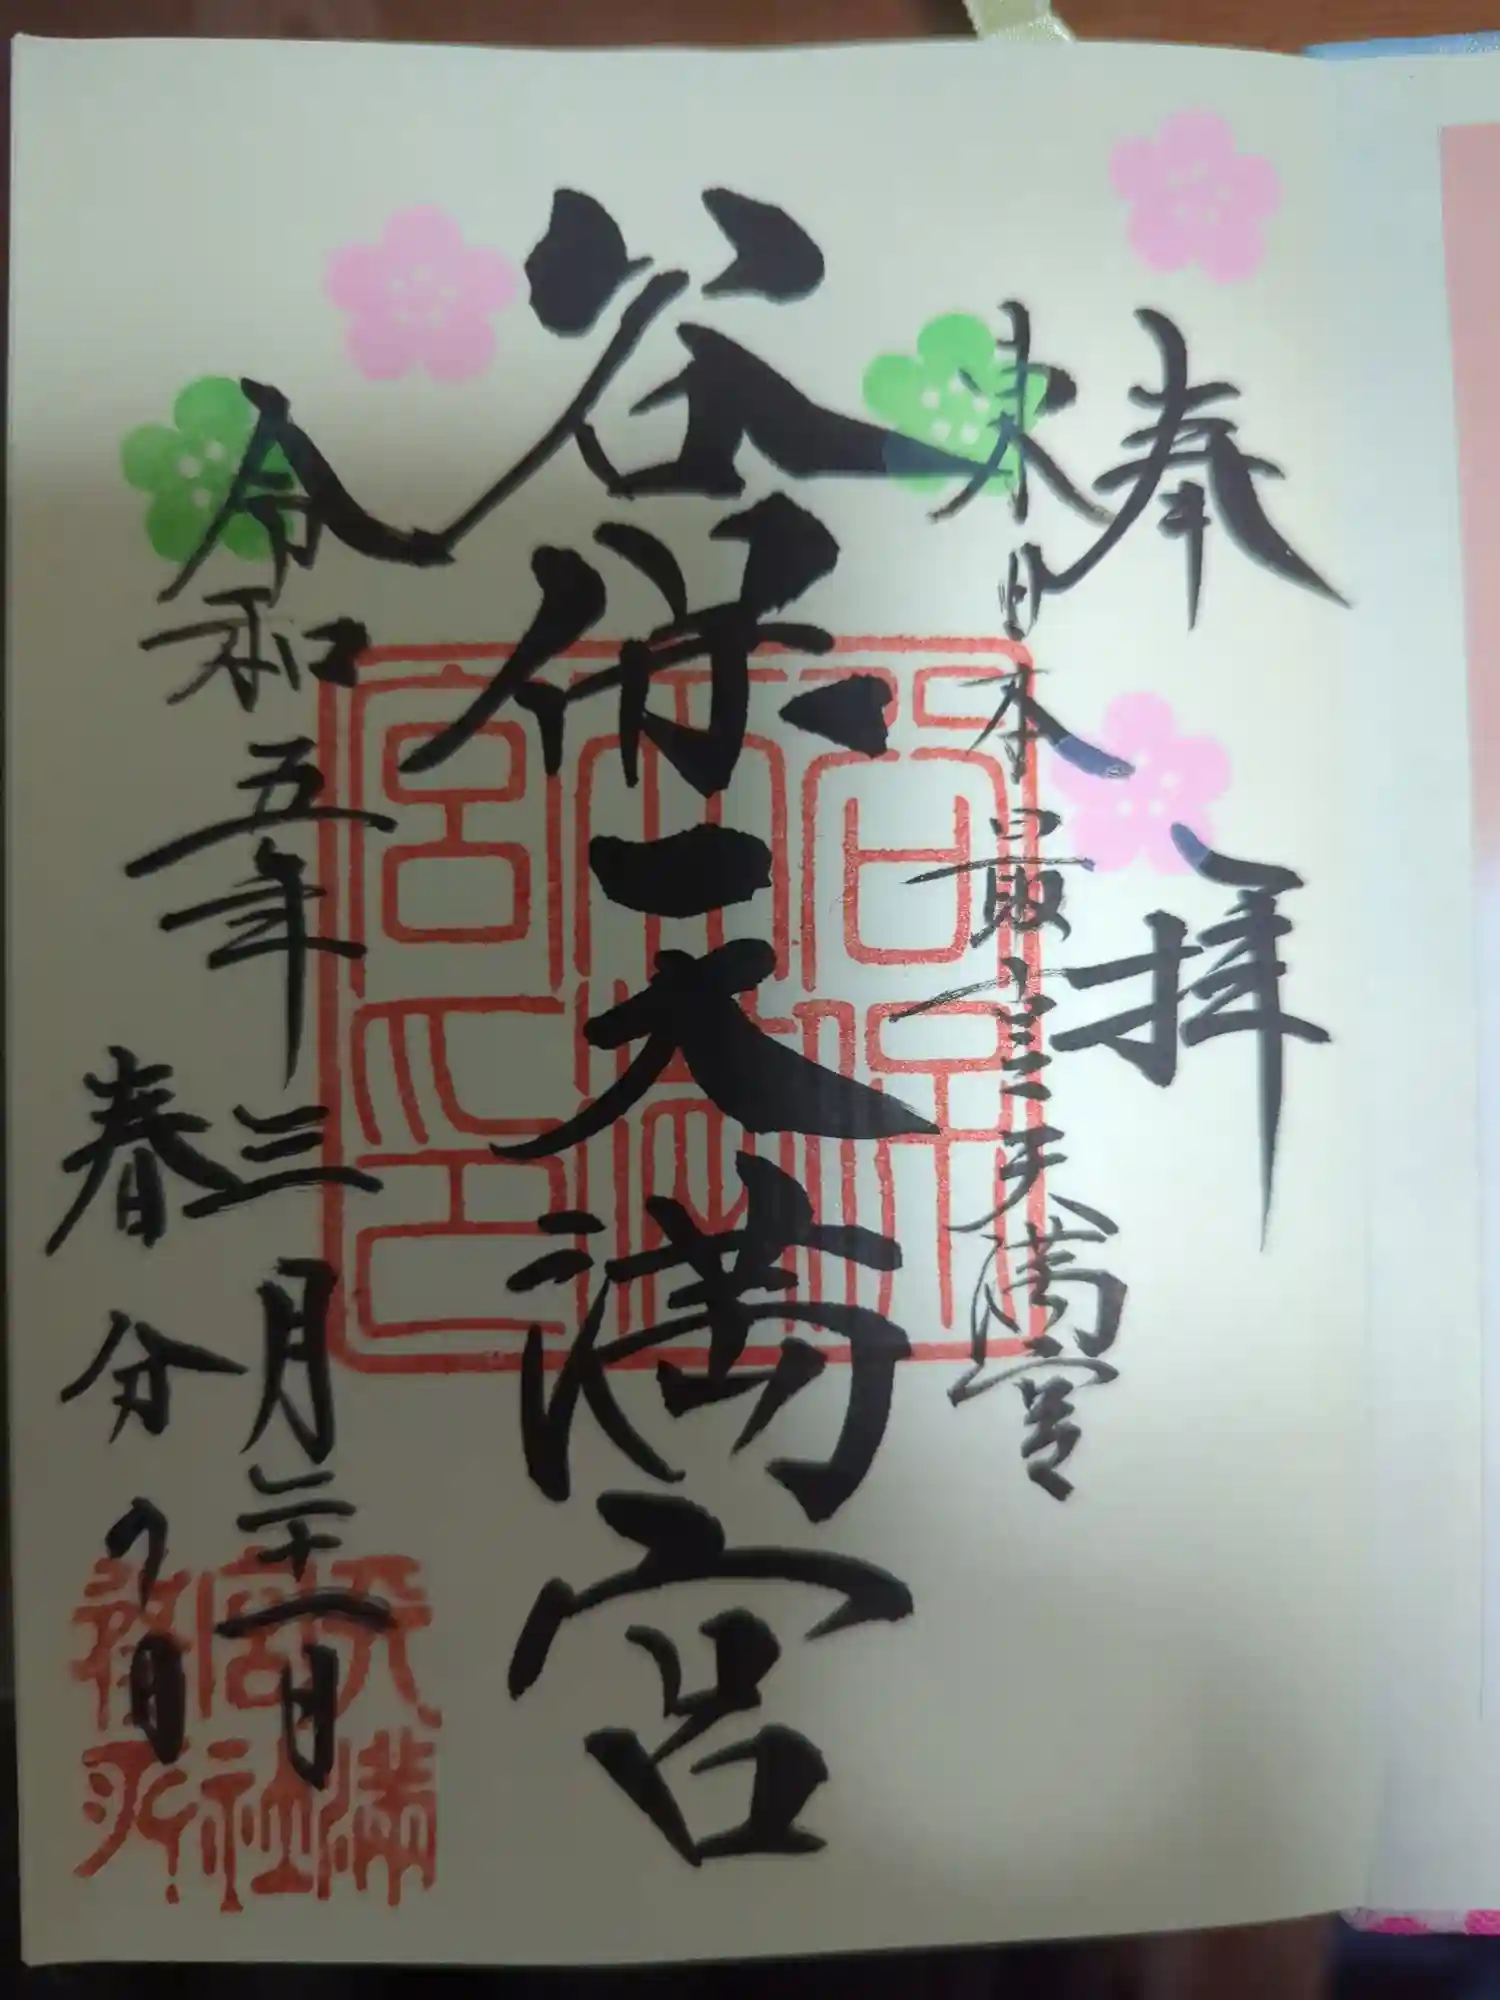 奉拝
東日本最古天満宮
谷保天満宮
令和五年三月二十一日
春分の日
谷保天満宮之印
天満宮社務所